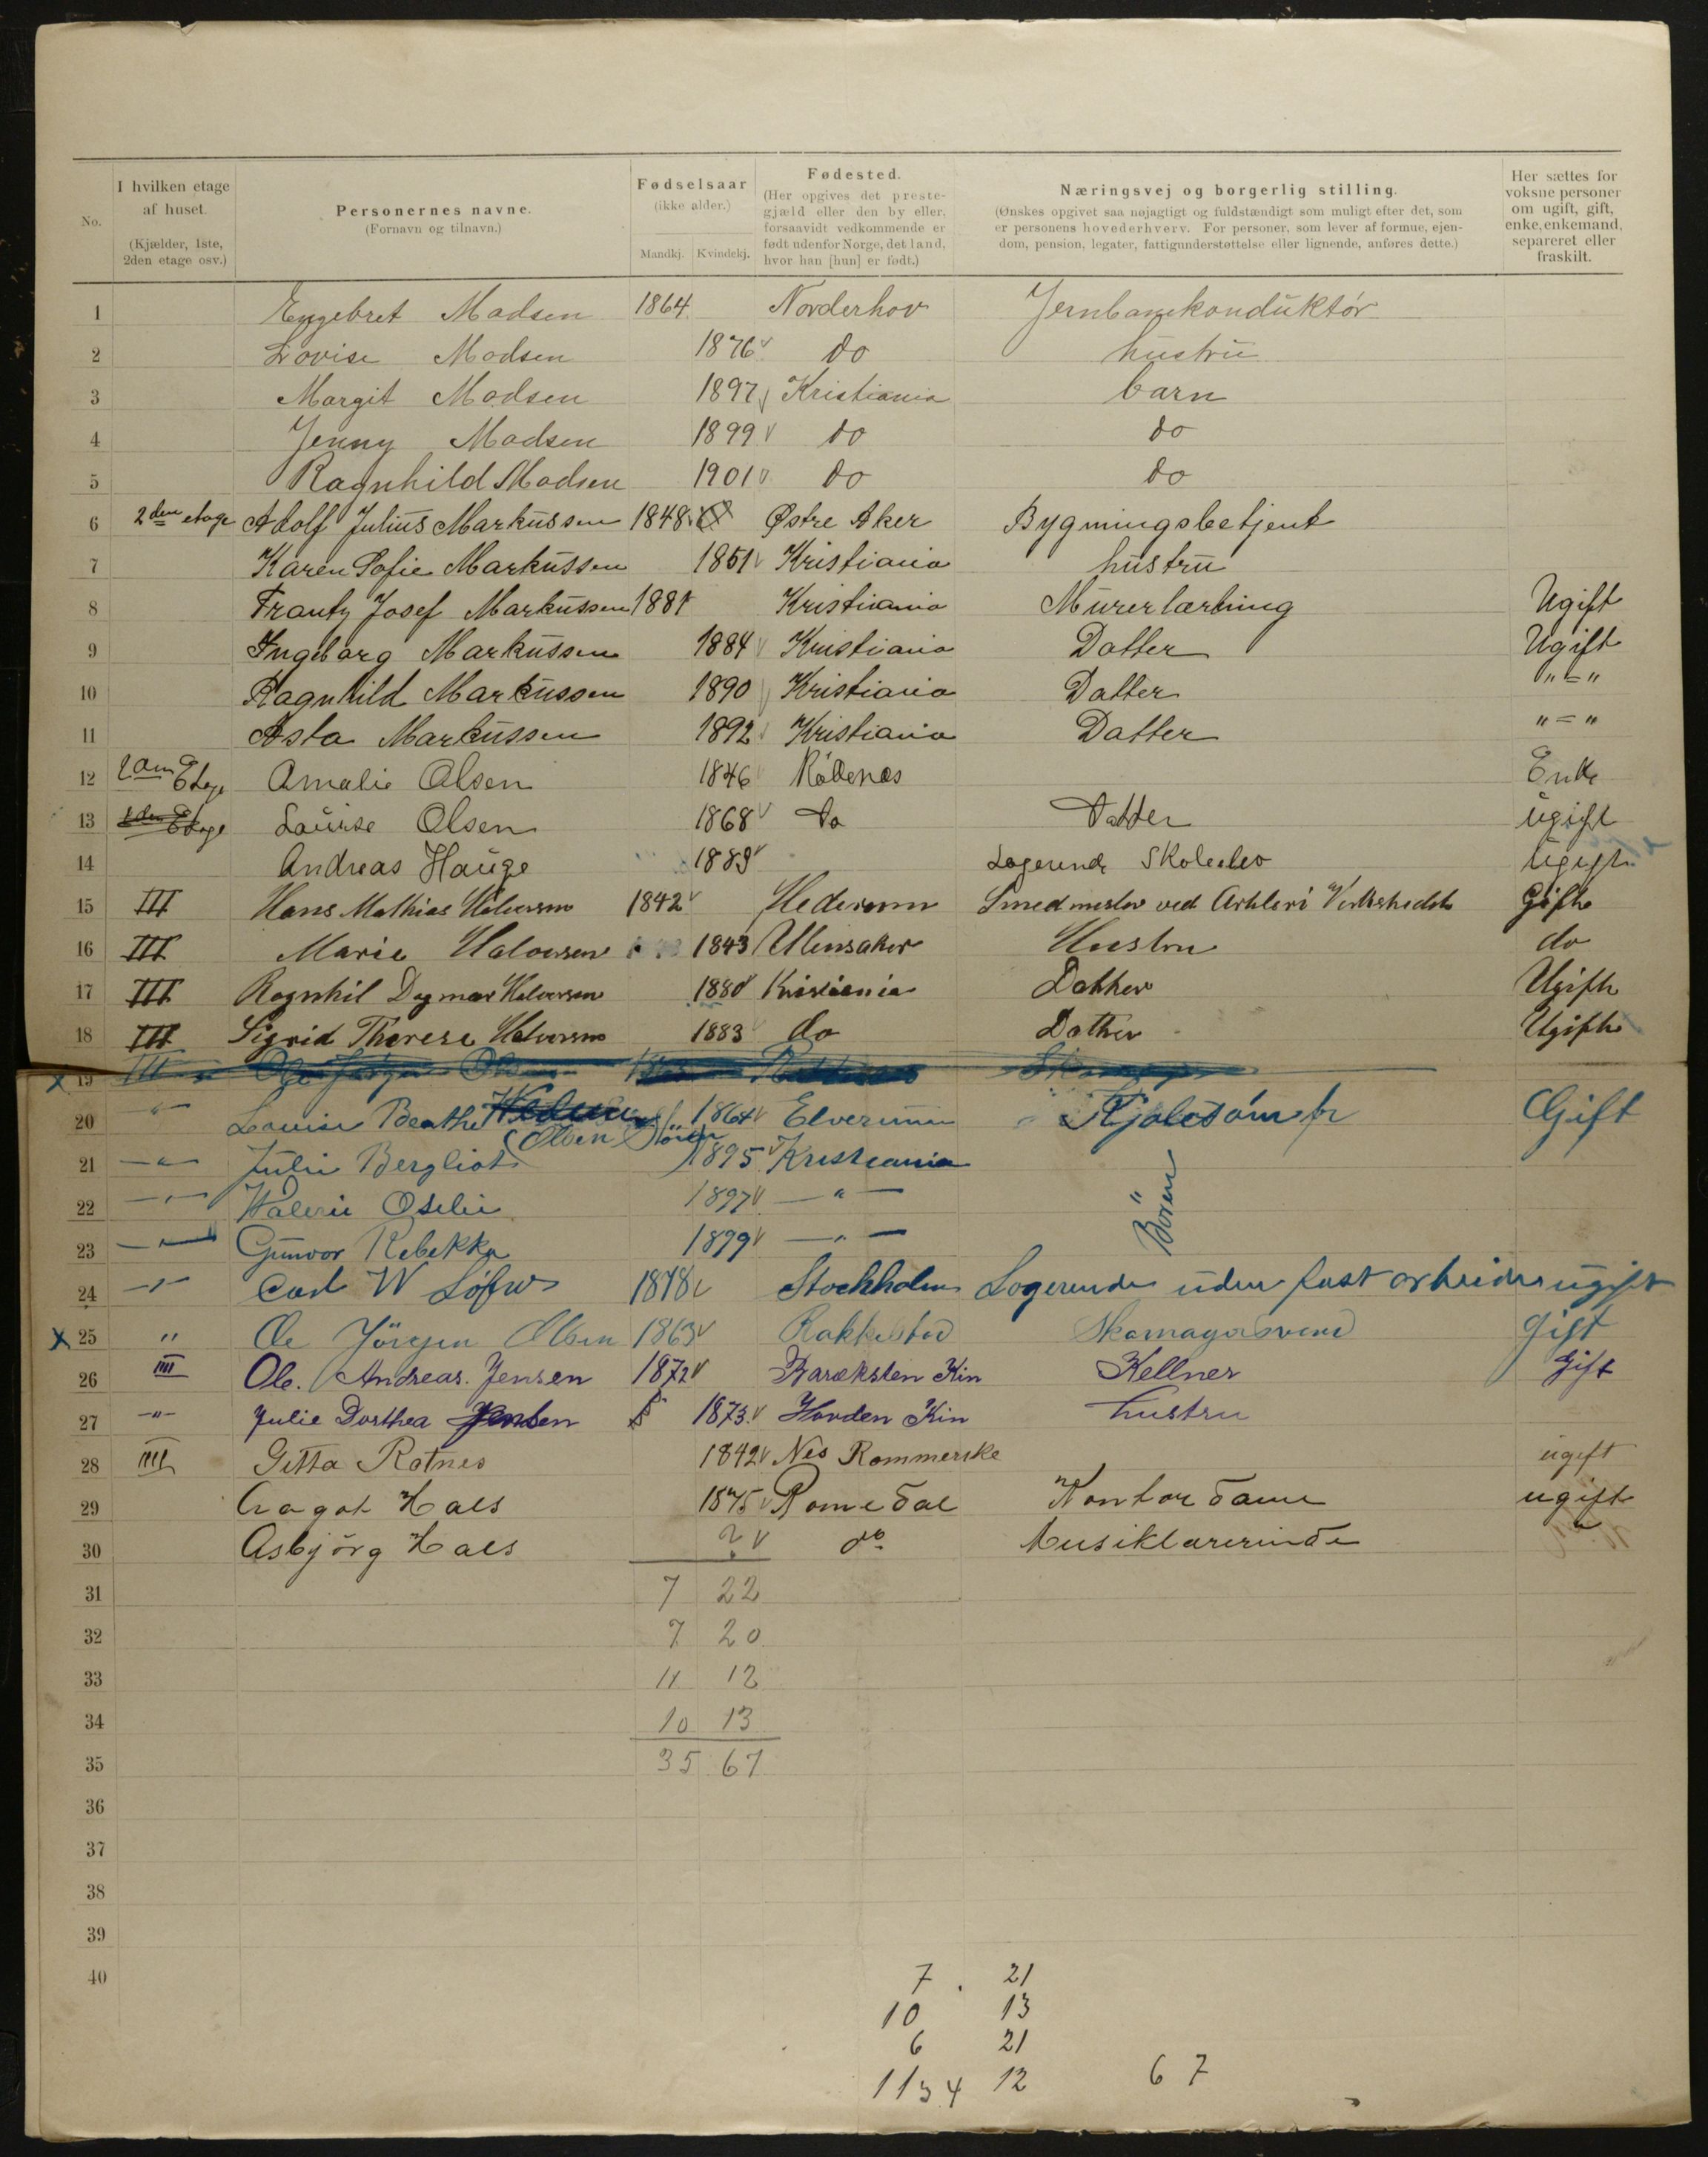 No. I hvilken etage af huset. (Kjælder, 1ste, 2den etage osv.) Personernes navne. (Fornavn og tilnavn.) Fødselsaar (ikke alder.) Mandkj. Kvindekj. Fødested. (Her opgives det prestegjæld eller den by eller, forsaavidt vedkommende er født udenfor Norge, det land, hvor han [hun] er født.) Næringsvej og borgerlig stilling. (Ønskes opgivet saa nøjagtigt og fuldstændigt som muligt efter det, som er personens hovederhverv. For personer, som lever af formue, ejendom, pension, legater, fattigunderstøttelse eller lignende, anføres dette.) Her sættes for voksne personer om ugift, gift, enke, enkemand, separeret eller fraskilt.
1 Engebret Madsen 1864 Norderhov Jernbanekonduktør
2 Lovise Madsen 1876 do hustru
3 Margit Madsen 1897 Kristiania barn
4 Jenny Madsen 1899 do do
5 Ragnhild Madsen 1901 do do
6 2den etage Adolf Julius Markussen 1848 Østre Aker Bygningsbetjent
7 Karen Sofie Markussen 1851 Kristiania hustru
8 Frantz Josef Markussen 1881 Kristiania Murerlærling Ugift
9 Ingeborg Markussen 1884 Kristiania Datter Ugift
10 Ragnhild Markussen 1890 Kristiania Datter " = "
11 Asta Markussen 1892 Kristiania Datter " = "
12 Etage Amalie Olsen 1846 Rödenes Enke
13 Etage Laurse Olsen 1868 Do Datter ugift
14 Andreas Hauge 1889 Logerende Skoleelev Ugift
15 III Hans Mathias Halvorsen 1842 Hedrum Smedmester ved Artleri Verkstedet Gift
16 III Marie Halvorsen 1843 Ullensaker Hustru do
17 III Ragnhil Dagmar Halvorsen 1880 Kristiania Datter Ugift
18 III Sigrid Therese Halvorsen 1883 do Datter Ugift
x 19 III Ole Jørgen Olsen
20 " Louise Beathe (Olsen 1864 Elverum Kjolesöm Gift
21 — " — Julie Bergliot 1895 Kristiania
22 — " — Valerie Oselie 1897 — " — Börn
23 — " — Gunvor Rebekka 1899 — " —
24 — " — Carl W Löfw 1878 Stockholm Logerende uden fast arbeide ugift
x 25 " Ole Jörgen Olsen 1863 Rakkestad Skomagersvend gift
26 IIII Ole. Andreas. Jensen 1872 Baræksten Kin Kellner Gift
27 — " — Julie Dorthea Jensen 1873. Horden Kin hustru
28 IIII Gitta Rotnes 1842 Nes Rommerike ugift
29 Aagot Hals 1875 Romedal Kontordame ugift
30 Asbjörg Hals ? do Musiklærerinde "
31 7 22
32 7 20
33 11 12
34 10 13
35 35 67
36
37
38
39
40
7 . 21
10 13
6 21
11 34 12 67